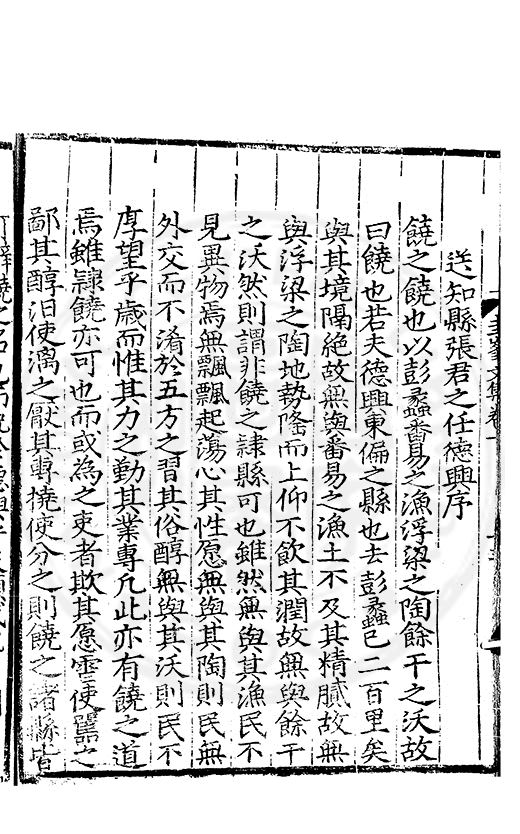 送知縣張君之任德興序
饒之饒也以彭蠡番昜之漁浮梁之陶餘干之沃故
曰饒也若夫德興東偏之縣也去彭蠡已二百里矣
與其境隔絕故無與番昜之漁土不及其精膩故無
與浮梁之陶地勢隆而上仰不飲其潤故無與餘干
之沃然則謂非饒之隷縣可也雖然無與其漁民不
見異物焉無飄飄起蕩心其性愿無與其陶則民無
外交而不淆於五方之習其俗醇無與其沃則民不
厚望乎歲而惟其力之勤其業專凡此亦有饒之道
焉雖隷饒亦可也而或為之吏者欺其愿雪使嚚之
鄙其醇汨使漓之厭其專撓使分之則饒之諸縣皆